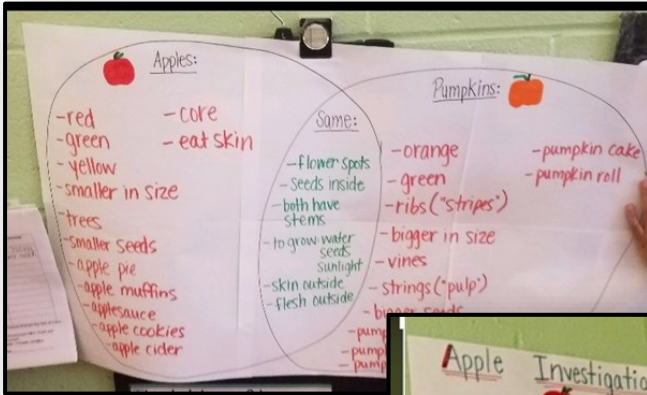 Apples:
-red
-green
-yellow
-smaller in size
-trees
-smaller seeds
-apple pie
-apple muffins
-applesauce
-apple cookies
-apple cider
-core
-eat skin
Same:
-flower spots
-seeds inside
-both have
stems
-to grow: water
seeds
sunlight
-skin outside
-flesh outside
Pumpkins:
-orange
-green
-ribs ("stripes")
-bigger in size
-vines
-strings ("pulp")
-pumpkin cake
-pumpkin roll
Apple Investigatio